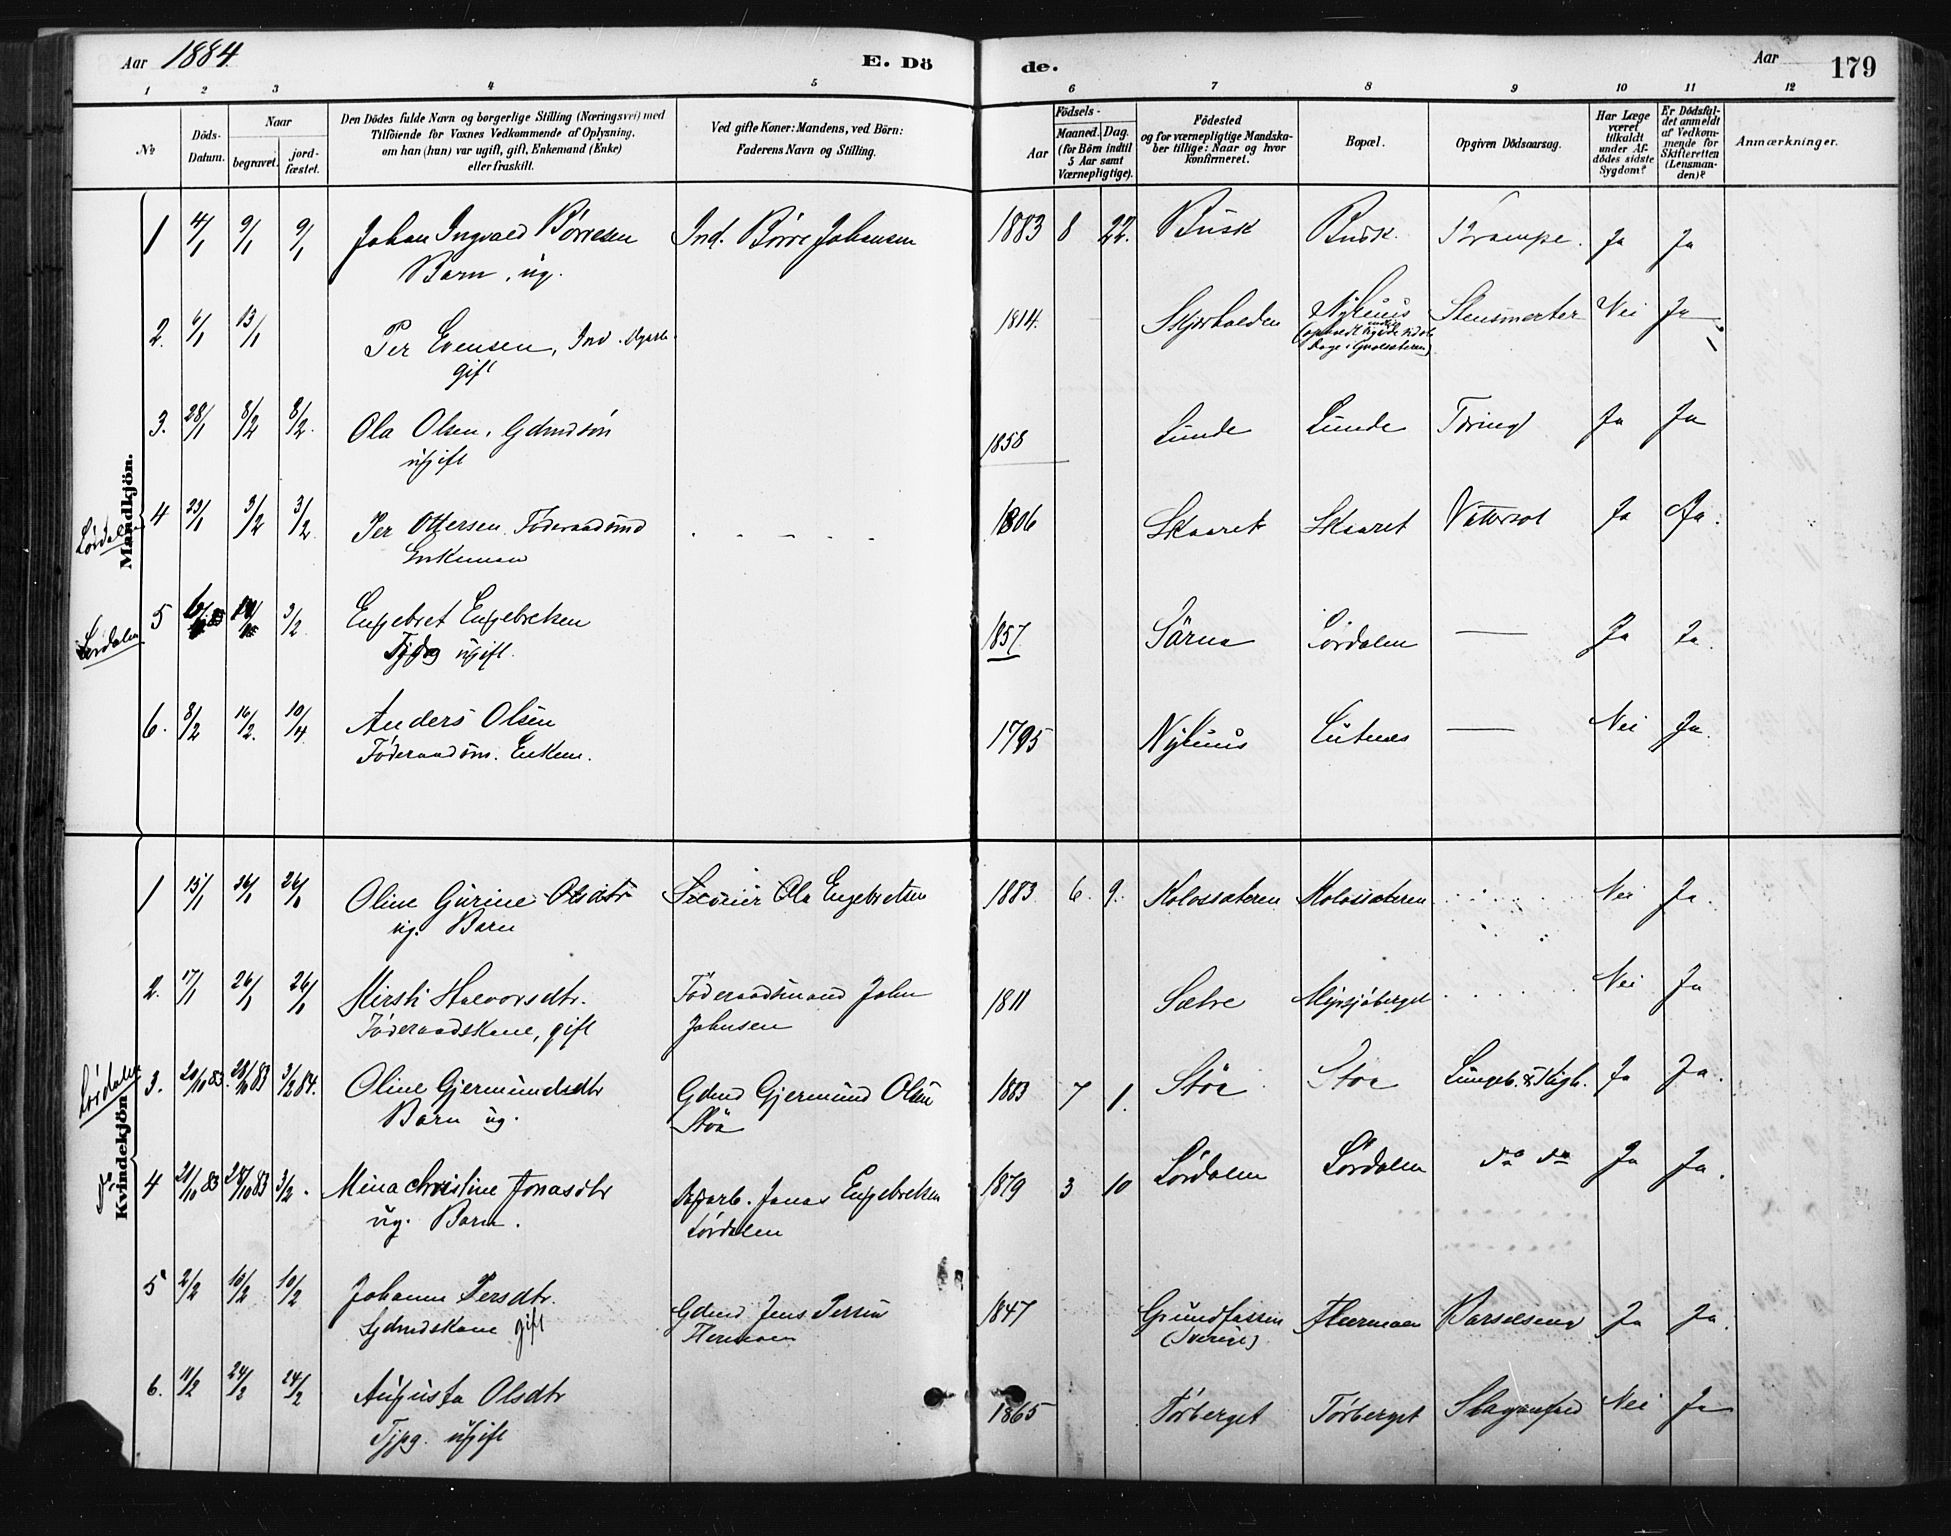 Aar 1884. E. Dö de. Aar 179
1 2 3 4 5 6 7 8 9 10 11 12
No
Döds-Datum.
Naar
begravet.
jordfæstet.
Den Dödes fulde Navn og borgerlige Stilling (Næringsvei) med
Tilföiende for Voxnes Vedkommende af Oplysning,
om han (hun) var ugift, gift, Enkemand (Enke)
eller fraskilt.
Ved gifte Koner: Mandens, ved Börn:
Faderens Navn og Stilling.
Födsels-
Aar
Maaned. Dag.
(for Börn indtil
5 Aar samt
Værnepligtige).
Födested
og for værnepligtige Mandskaber tillige: Naar og hvor
konfirmeret.
Bopæl.
Opgiven Dödsaarsag.
Har Læge
været
tilkaldt
under Afdödes sidste
Sygdom?
Er Dödsfaldet anmeldt
af Vedkommende for
Skifteretten
(Lensmanden)?
Anmærkninger.
Mandkjön.
1 4/1 9/1 9/1 Johan Ingvald Börresen Ind. Börre Johansen 1883 8 22. Busk Busk. Krampe. Ja Ja
Barn, ug.
2. 6/1 13/1 Per Evensen, Ind. 1814. Skjærholden Nyhuus Nei Ja
gift
3. 28/1 8/2 8/2. Ola Olsen, Gdmdsön 1858 Lunde Lunde Tæring Ja Ja
ugift
Lördalen
4 23/1 3/2 3/2. Per Ottersen Föderaadsmd 1806 Skaaret Skaaret Vattersot Ja Ja.
Enkeman
Lördalen
5 3/2. Engebret Engebretsen 1857. Särna Lördalen — Ja Ja.
ugift.
6. 8/2 16/2. 10/4 Anders Olsen 1795 Nyhuus Lutnes — Nei Ja.
Föderaadsm. Enkem.
Kvindekjön
1 15/1 26/1 26/1 Oline Gurine Olsdtr Ola Engebretsen 1883 6. 9. Kolossæteren Kolossæteren Nei Ja.
ug. Barn
2. 17/1 26/1 26/1 Kirsti Halvorsdtr. Föderaadsmand John 1811 Sætre Myrsjöberget Nei Ja
Föderaadskone, gift Johnsen
Lördalen
3. 20/10 83. 28/10 83 3/2 84. Oline Gjermundsdtr Gdmd Gjermund Olsen 1883 7 1. Stöa Stöa Ja Ja.
Barn ug. Stöa
do
4 21/10 83 28/10 83 3/2. Mina Christine Jonasdtr Jonas Engebretsen 1879 3 10 Lördalen Lördalen do do Ja Ja.
ug. Barn. Lördalen
5 2/2 10/2 10/2 Johanne Persdtr. Gdmd Jens Persen 1847 Grundfassen Flermoen Barselseng Ja Ja.
Gdmdskone gift Flermoen (Sverige)
6. 11/2 24/2 24/2 Augusta Olsdtr 1865 Törberget Törberget Slaganfald Nei Ja
Tjpg. ugift